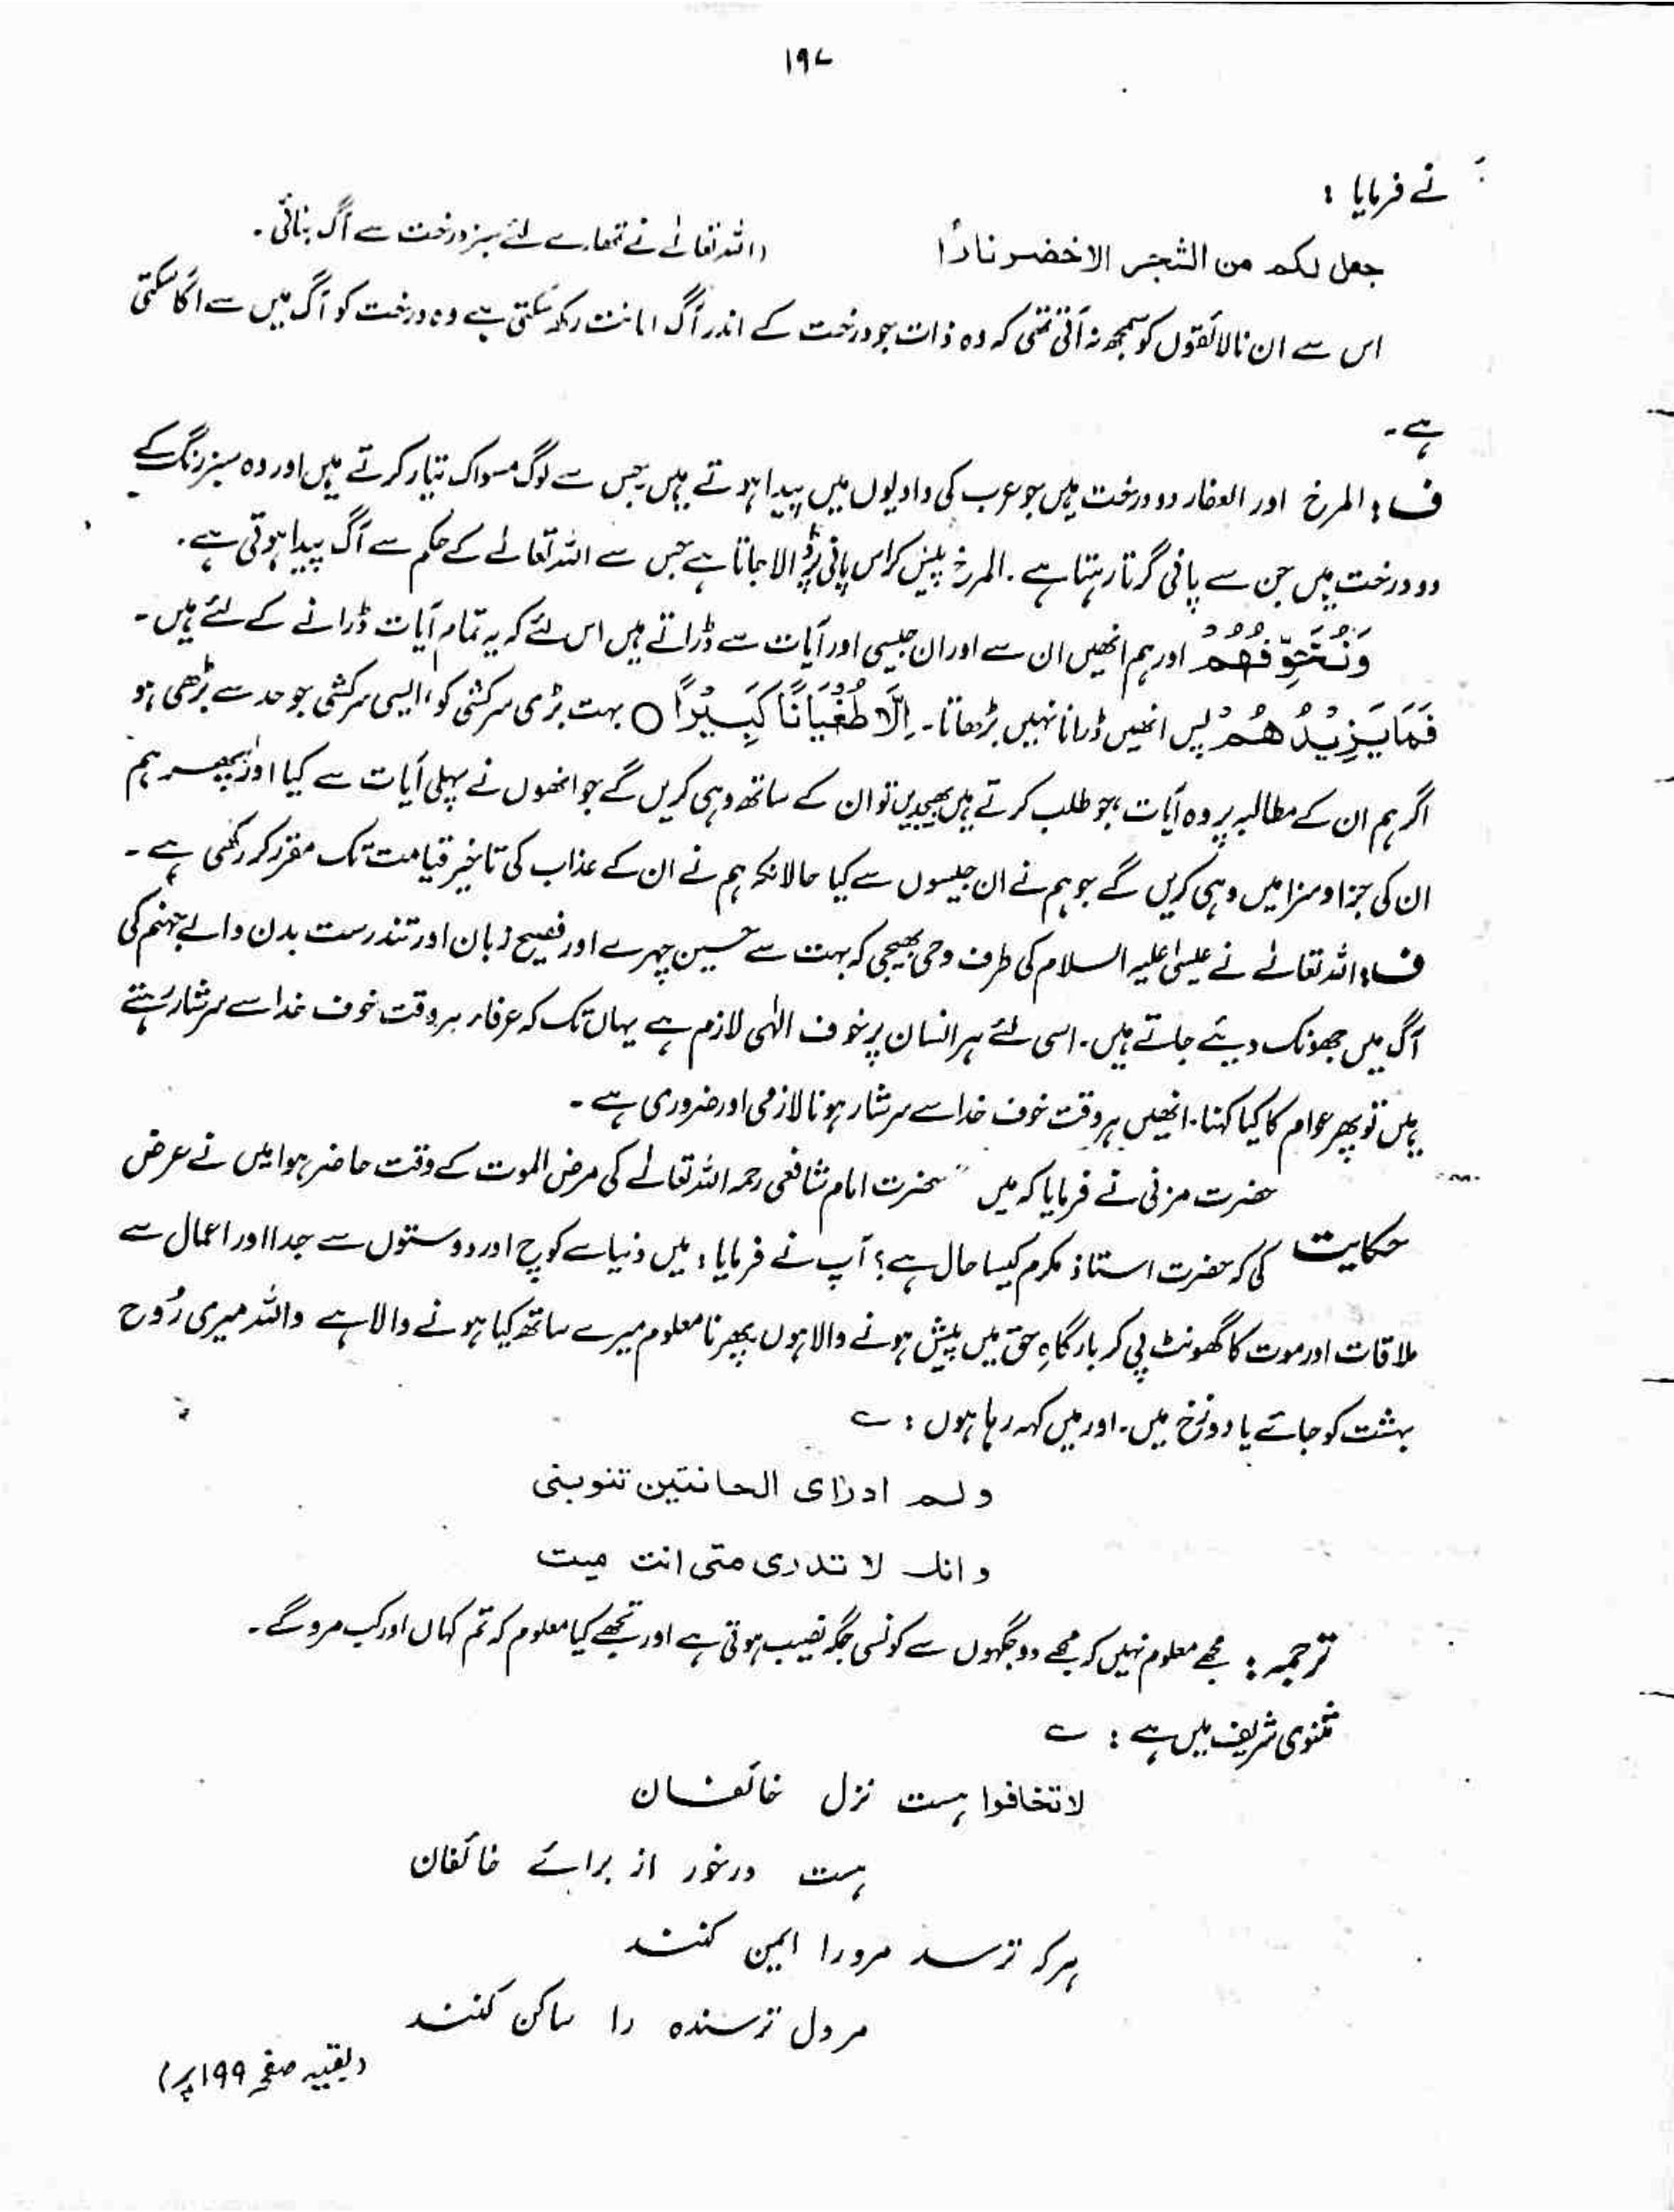 ۱۹۷
نے فرمایا :
جعل لکم من الشجر الاخضر نارًا (اللہ تعالےٰ نے تمھارے لئے سبز درخت سے آگ بنائی۔
اس سے ان نالائقوں کو سمجھ نہ آتی تھی کہ وہ ذات جو درخت کے اندر آگ امانت رکھ سکتی ہے وہ درخت کو آگ میں سے اگا سکتی
ہے۔
ف : المرخ اور العفار دو درخت ہیں جو عرب کی وادیوں میں پیدا ہوتے ہیں جس سے لوگ مسواک تیار کرتے ہیں اور وہ سبز رنگ کے
دو درخت ہیں جن سے پانی گرتا رہتا ہے۔ المرخ پیس کر اس پانی پر ڈالا جاتا ہے جس سے اللہ تعالےٰ کے حکم سے آگ پیدا ہوتی ہے۔
وَنُخَوِّفُهُمْ اور ہم انھیں ان سے اور ان جیسی اور آیات سے ڈراتے ہیں اس لئے کہ یہ تمام آیات ڈرانے کے لئے ہیں۔
فَمَا يَزِيْدُهُمْ پس انھیں ڈرانا نہیں بڑھاتا۔ اِلَّا طُغْيَانًا كَبِيْرًا ○ بہت بڑی سرکشی کو، ایسی سرکشی جو حد سے بڑھی ہو
اگر ہم ان کے مطالبہ پر وہ آیات، جو طلب کرتے ہیں بھیجدیں تو ان کے ساتھ وہی کریں گے جو انھوں نے پہلی آیات سے کیا اور پھر ہم
ان کی جزا و سزا میں وہی کریں گے جو ہم نے ان جیسوں سے کیا حالانکہ ہم نے ان کے عذاب کی تاخیر قیامت تک مقرر کر رکھی ہے۔
ف : اللہ تعالےٰ نے عیسیٰ علیہ السلام کی طرف وحی بھیجی کہ بہت سے حسین چہرے اور فصیح زبان اور تندرست بدن والے جہنم کی
آگ میں جھونک دیئے جاتے ہیں۔ اسی لئے ہر انسان پر خوف الٰہی لازم ہے یہاں تک کہ عرفاء ہر وقت خوف خدا سے سرشار رہتے
ہیں تو پھر عوام کا کیا کہنا۔ انھیں ہر وقت خوف خدا سے سرشار ہونا لازمی اور ضروری ہے۔
حضرت مزنی نے فرمایا کہ میں حضرت امام شافعی رحمہ اللہ تعالےٰ کی مرض الموت کے وقت حاضر ہوا میں نے عرض
حکایت کی کہ حضرت استاذ مکرم کیسا حال ہے؟ آپ نے فرمایا : میں دنیا سے کوچ اور دوستوں سے جدا اور اعمال سے
ملاقات اور موت کا گھونٹ پی کر بارگاہِ حق میں پیش ہونے والا ہوں پھر نامعلوم میرے ساتھ کیا ہونے والا ہے واللہ میری رُوح
بہشت کو جائے یا دوزخ میں۔ اور میں کہہ رہا ہوں : ے
ولم ادر ای الحانتین تنوبنی
وانك لا تدری متی انت میت
ترجمہ : مجھے معلوم نہیں کہ مجھے دو جگہوں سے کونسی جگہ نصیب ہوتی ہے اور تجھے کیا معلوم کہ تم کہاں اور کب مرو گے۔
مثنوی شریف میں ہے : ے
لاتخافوا ہست نزل خائفان
ہست درخور از برائے خائفان
ہرکہ ترسد مرورا ایمن کنند
مر دل ترسندہ را ساکن کنند
(بقیہ صفحہ ۱۹۹ پر)